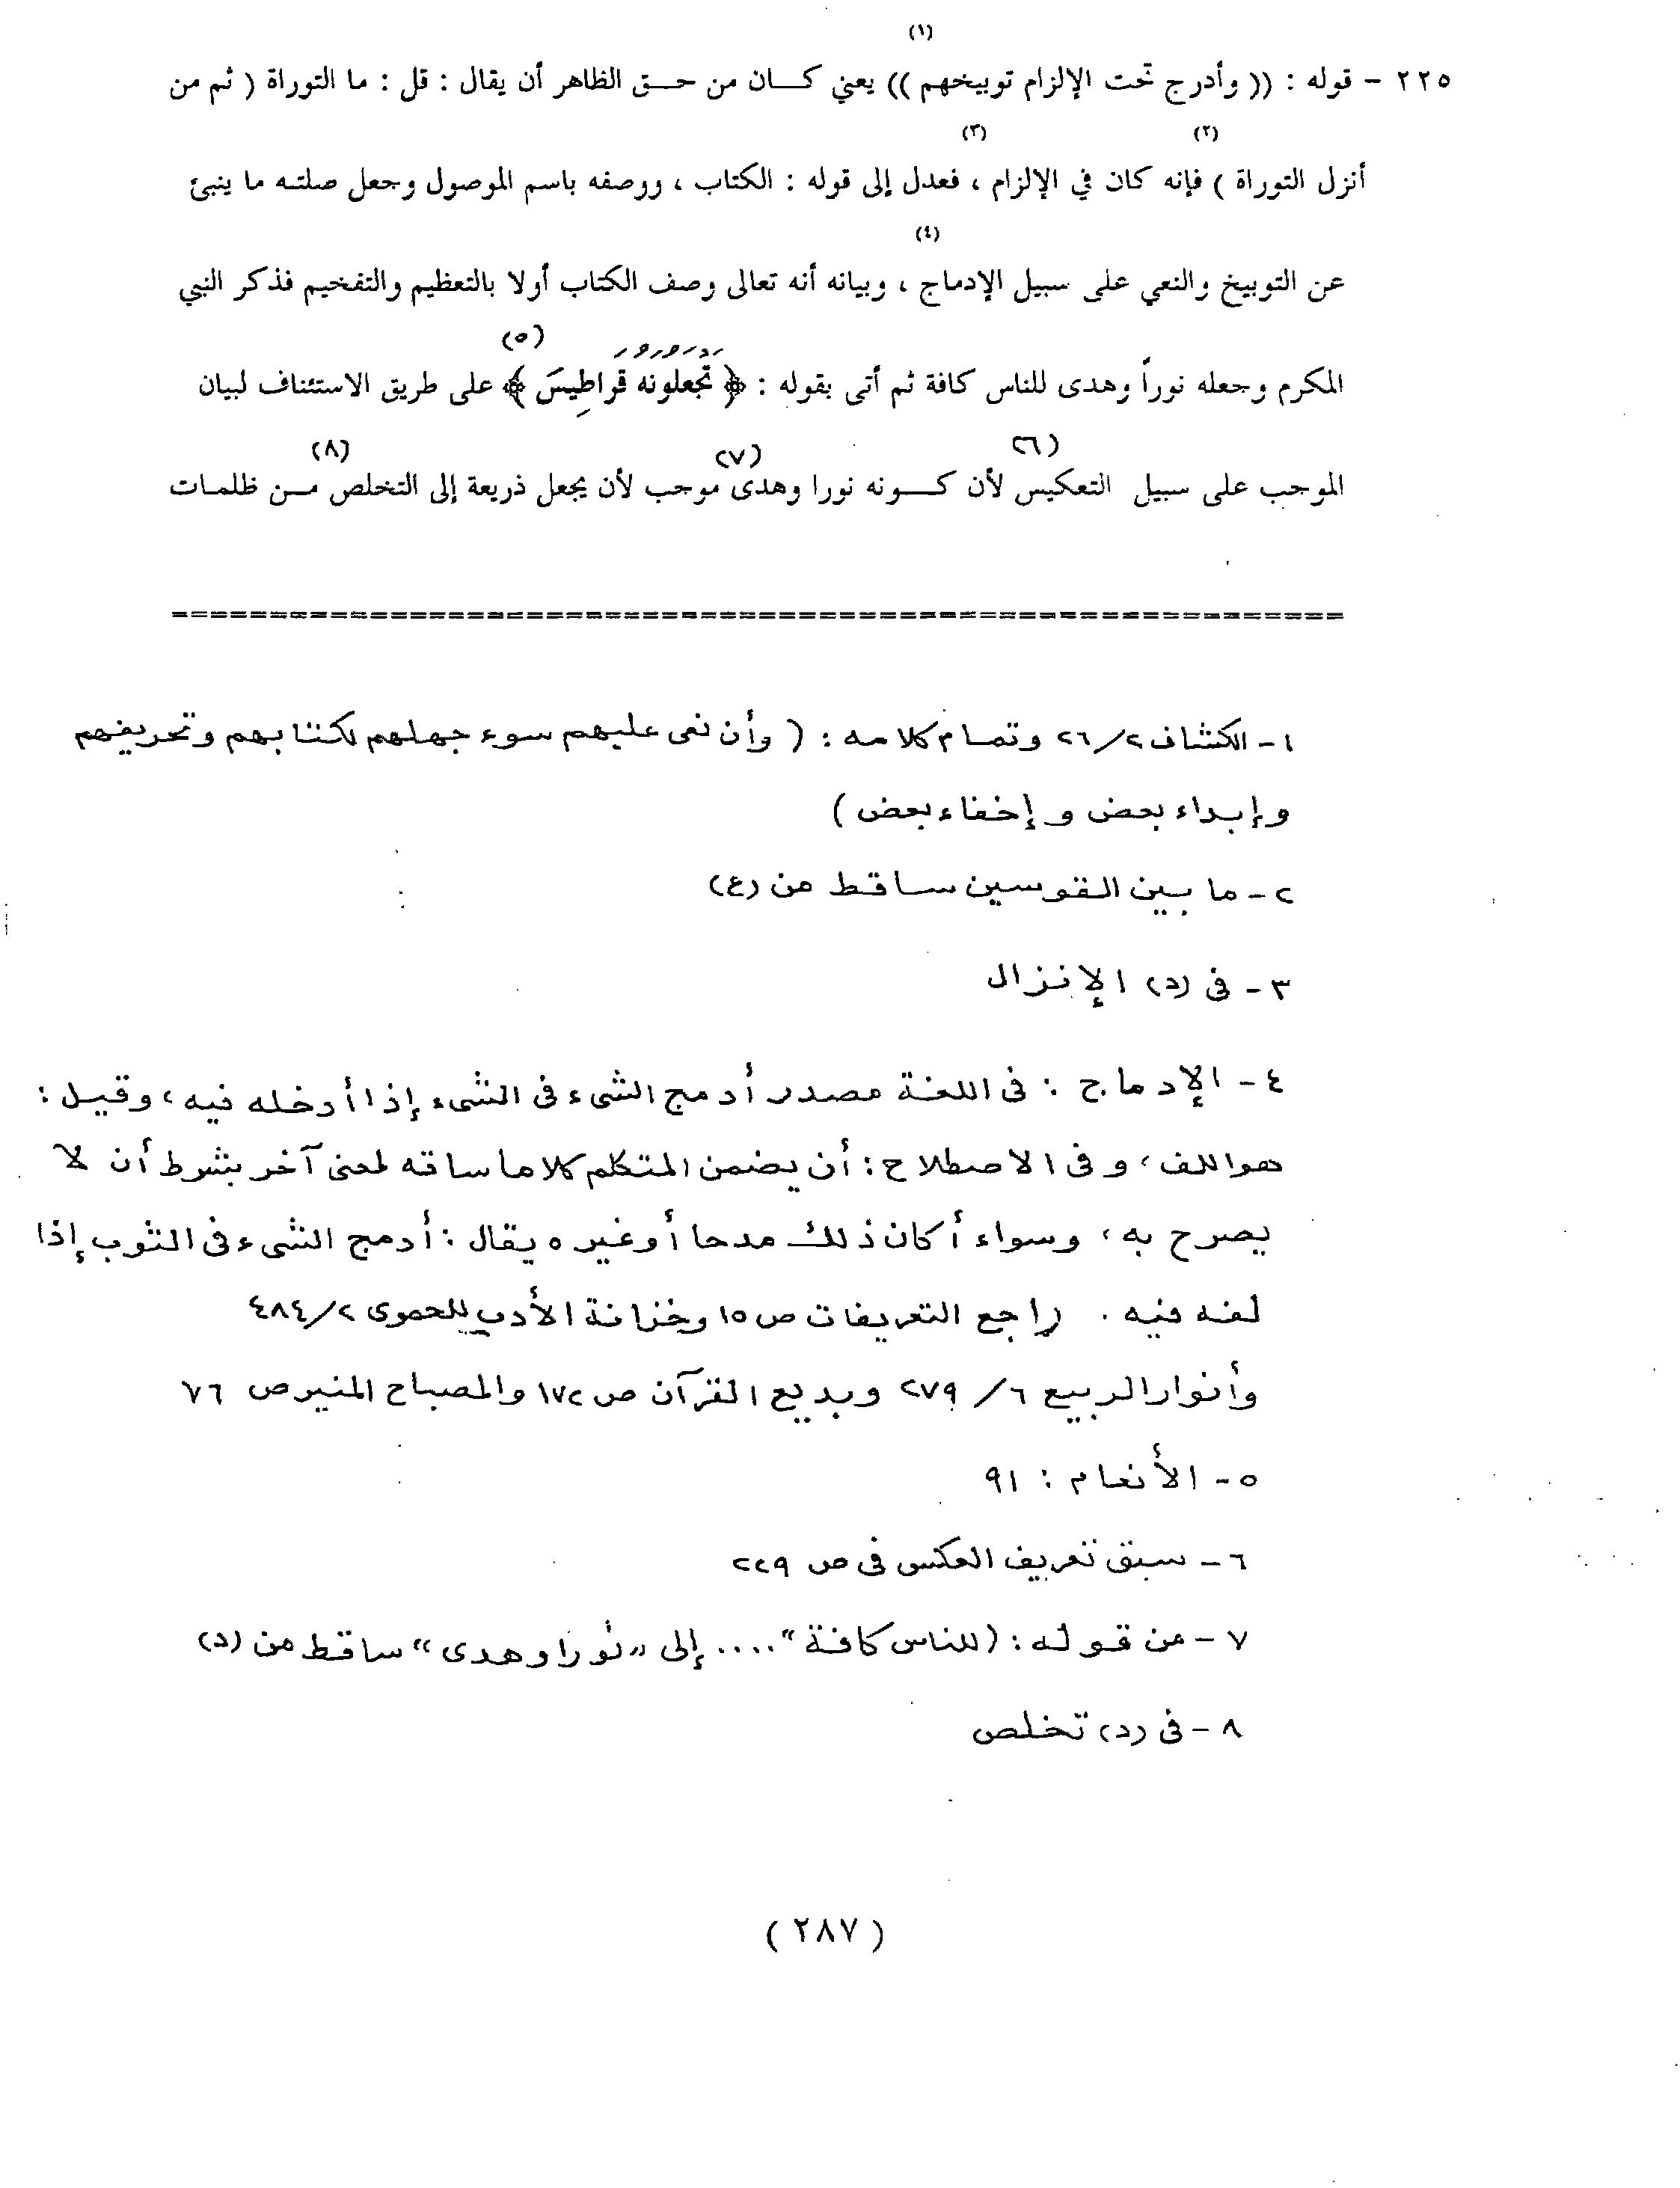 (١)
٢٢٥ – قوله : (( وأدرج تحت الإلزام توبيخهم )) يعني كـــان من حـــق الظاهر أن يقال : قل : ما التوراة ( ثم من
(٢) (٣)
أنزل التوراة ) فإنه كان في الإلزام ، فعدل إلى قوله : الكتاب ، ووصفه باسم الموصول وجعل صلته ما ينبئ
(٤)
عن التوبيخ والنعي على سبيل الإدماج ، وبيانه أنه تعالى وصف الكتاب أولا بالتعظيم والتفخيم فذكر النبي
(٥)
المكرم وجعله نوراً وهدى للناس كافة ثم أتى بقوله : ﴿ تَجعلونه قراطِيسَ ﴾ على طريق الاستئناف لبيان
(٦) (٧) (٨)
الموجب على سبيل التعكيس لأن كـــونه نورا وهدى موجب لأن يجعل ذريعة إلى التخلص مـــن ظلمات
===========================================================
١- الكشاف ٢٦/٢ وتمام كلامه : ( وأن نعى عليهم سوء جهلهم لكتابهم وتحريفهم
وإبداء بعض وإخفاء بعض )
٢- ما بين القوسين ساقط من (ع)
٣- فى (د) الإنزال
٤- الإدماج : فى اللغة مصدر أدمج الشىء فى الشىء إذا أدخله فيه ، وقيل :
هو اللف ، وفى الاصطلاح : أن يضمن المتكلم كلاما ساقه لمعنى آخر بشرط أن لا
يصرح به ، وسواء أكان ذلك مدحا أو غيره يقال : أدمج الشىء فى الثوب إذا
لفه فيه . راجع التعريفات ص ١٥ وخزانة الأدب للحموى ٤٨٤/٢
وأنوار الربيع ٦/ ٢٧٩ وبديع القرآن ص ١٧٢ والمصباح المنير ص ٧٦
٥- الأنعام : ٩١
٦- سبق تعريف العكس فى ص ٢٤٩
٧- من قوله : (للناس كافة " .... إلى " نورا وهدى " ساقط من (د)
٨- فى (د) تخلص
( ٢٨٧ )